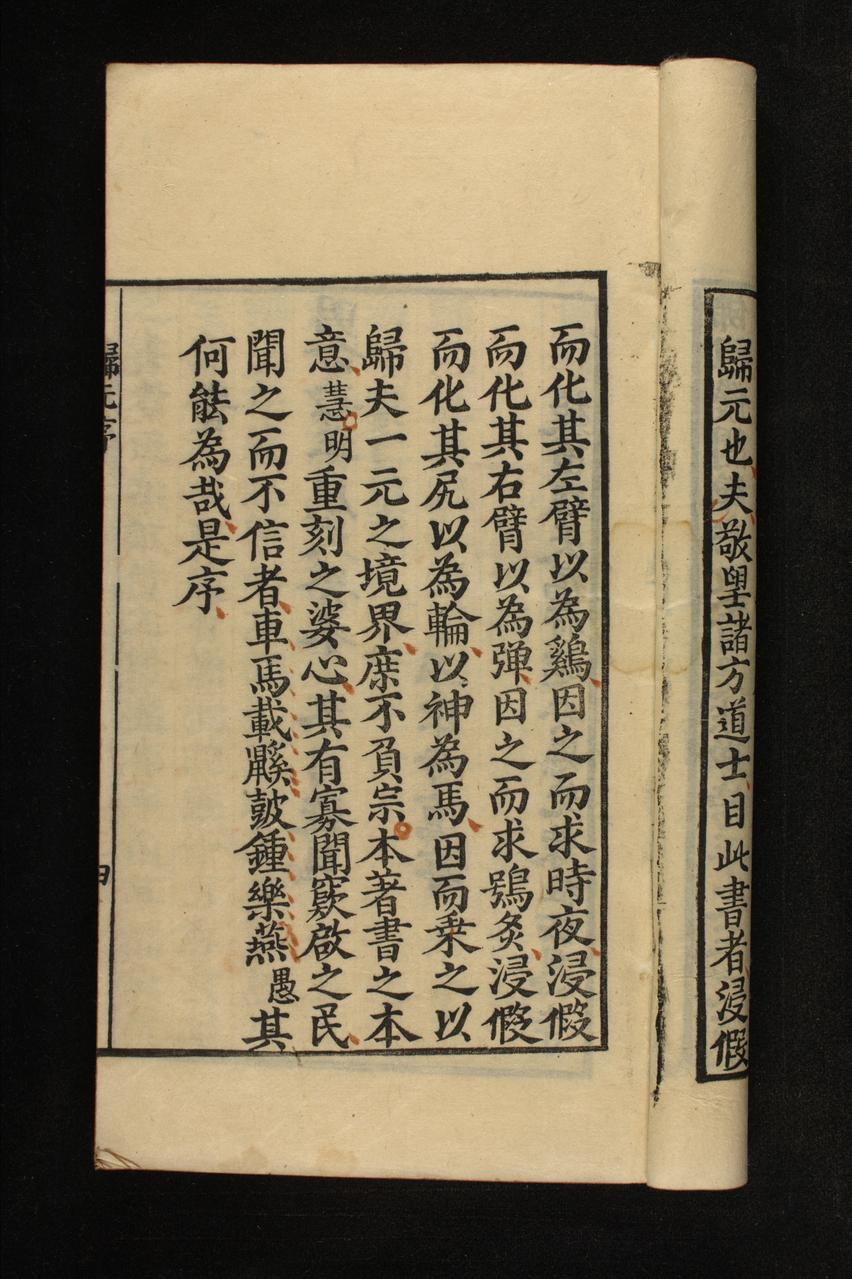 歸元也夫敬望諸方道士目此書者浸假
而化其左臂以為鷄因之而求時夜浸假
而化其右臂以為弹因之而求鴞炙浸假
而化其尻以為輪以神為馬因而乗之以
歸夫一元之境界庶不負宗本著書之本
意慧明重刻之婆心其有寡聞窾啟之民
聞之而不信者車馬載鼷鼓鍾樂燕愚其
何能為哉是序
歸元序
四